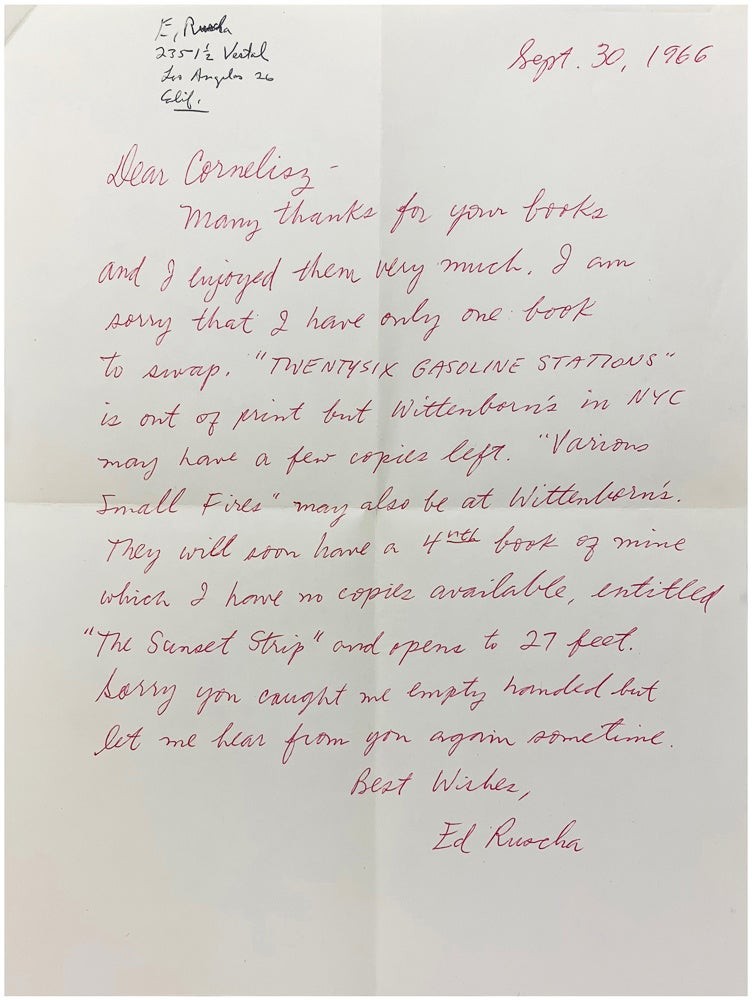 E, Ruscha
2351½ Vestal
Los Angeles 26
Calif.
Sept. 30, 1966
Dear Cornelisz -
Many thanks for your books
and I enjoyed them very much. I am
sorry that I have only one book
to swap. "TWENTYSIX GASOLINE STATIONS"
is out of print but Wittenborn's in NYC
may have a few copies left. "Various
Small Fires" may also be at Wittenborn's.
They will soon have a 4nth book of mine
which I have no copies available, entitled
"The Sunset Strip" and opens to 27 feet.
Sorry you caught me empty handed but
let me hear from you again sometime.
Best Wishes,
Ed Ruscha